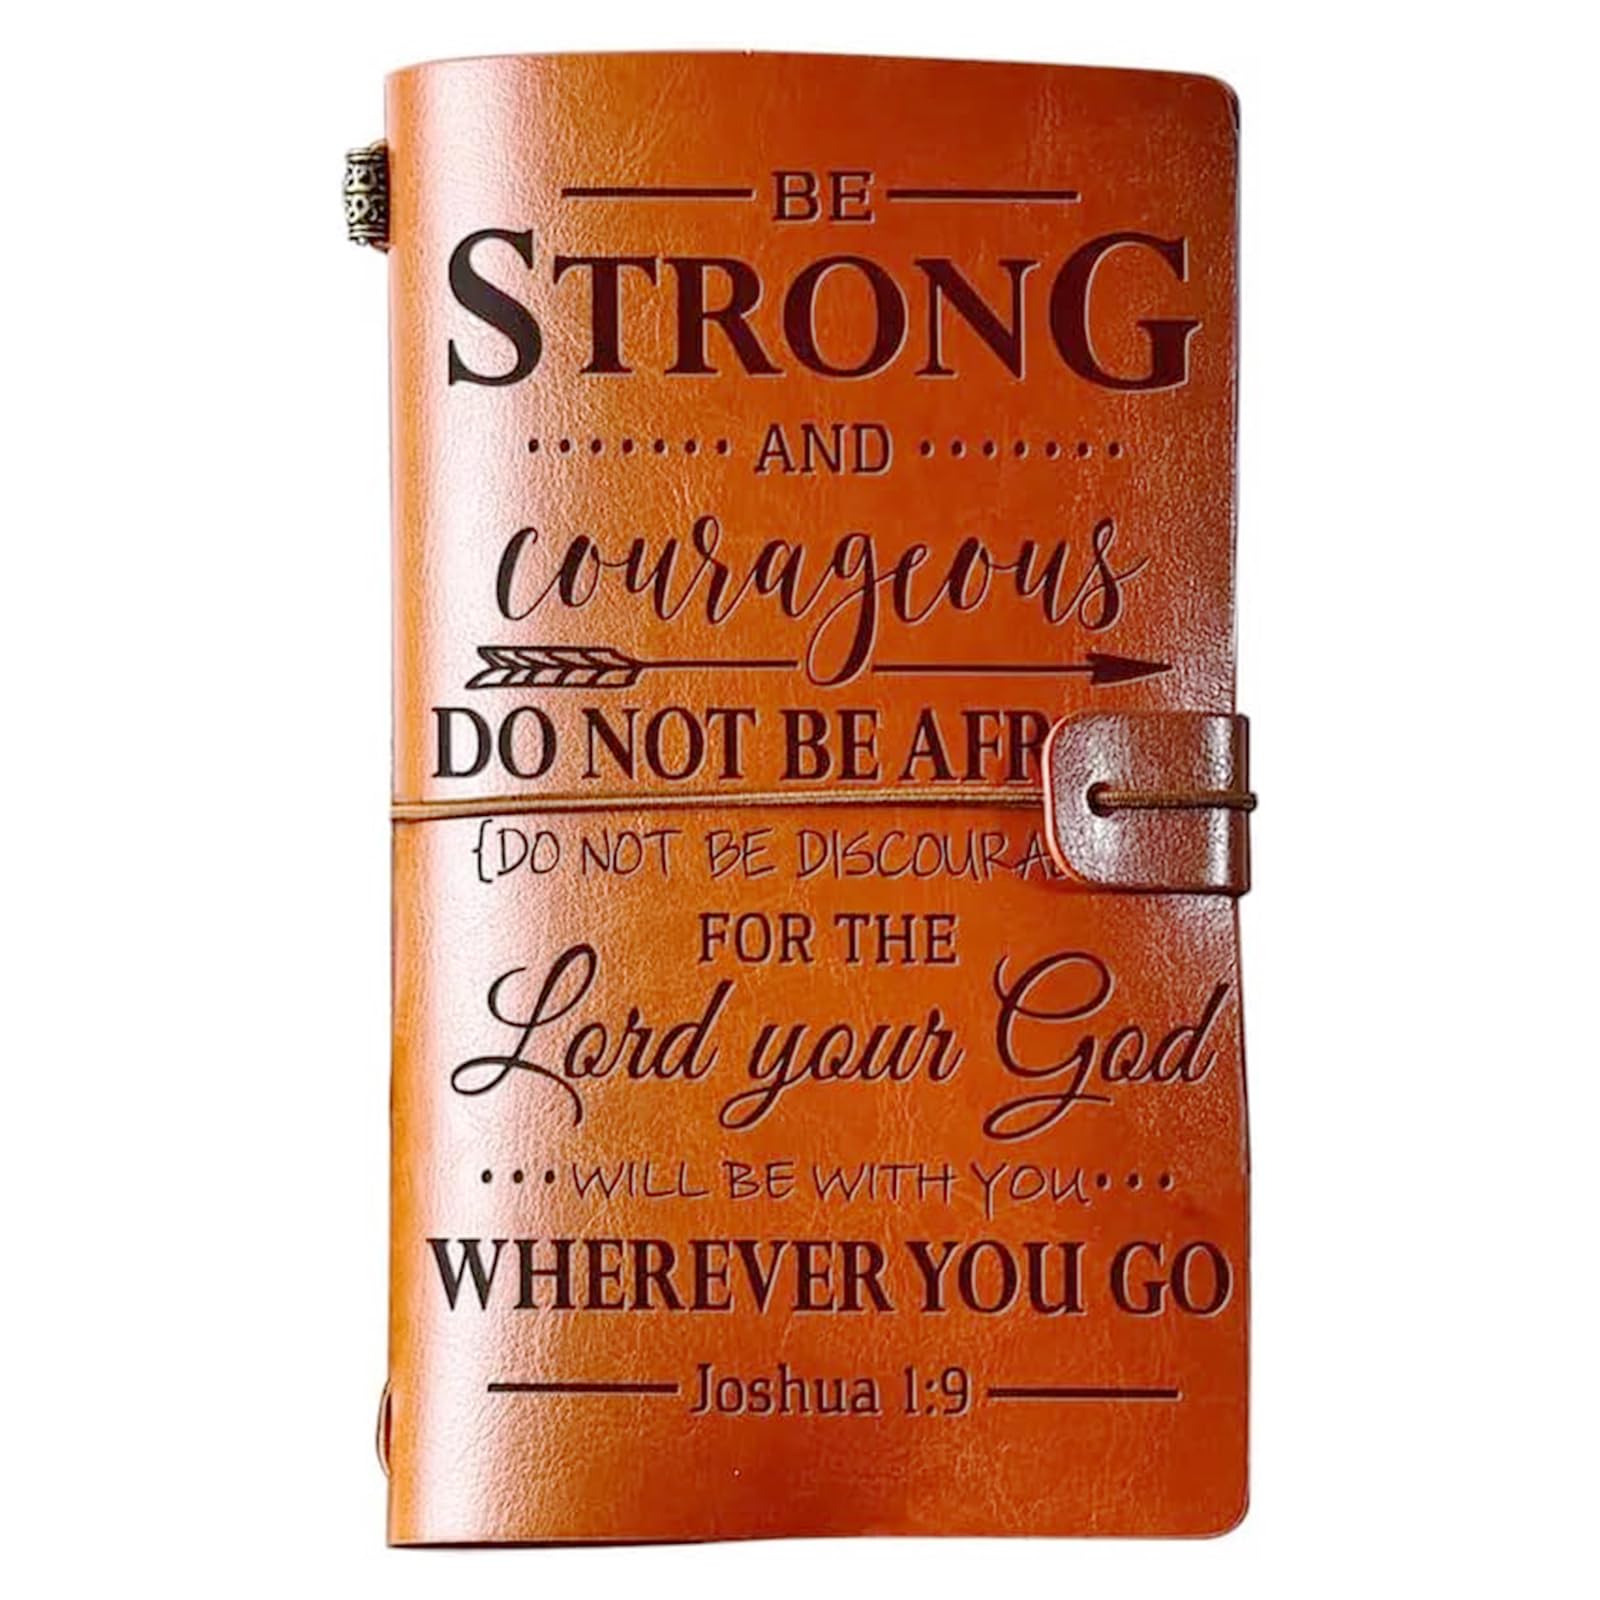 BE
STRONG
AND
courageous
DO NOT BE AFR
{DO NOT BE DISCOURA
FOR THE
Lord your God
WILL BE WITH YOU
WHEREVER YOU GO
Joshua 1:9